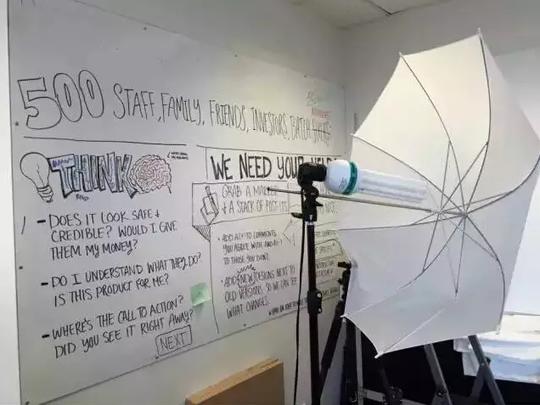 500 STAFF, FAMILY, FRIENDS, INVESTORS, BATCH
THINK
- DOES IT LOOK SAFE +
CREDIBLE? WOULD I GIVE
THEM MY MONEY?
- DO I UNDERSTAND WHAT THEY DO?
IS THIS PRODUCT FOR ME?
- WHERE'S THE CALL TO ACTION?
DID YOU SEE IT RIGHT AWAY?
NEXT
WE NEED YOUR
GRAB A
& A STACK OF POST-ITS
• ADD TO COMMENTS
YOU AGREE WITH AND
TO THOSE YOU DON'T.
• ADD NEW DESIGNS NEXT TO
OLD VERSIONS, SO WE CAN SEE
WHAT CHANGES.